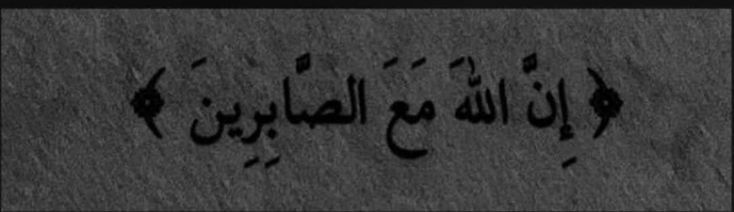 ﴿ إِنَّ اللهَ مَعَ الصَّابِرِينَ ﴾